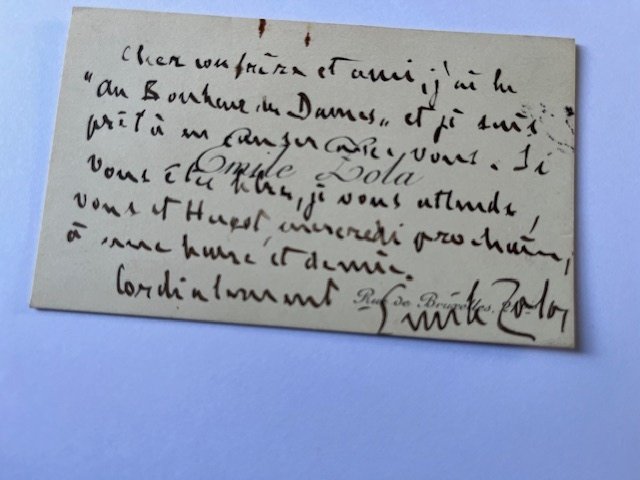 Cher confrère et ami, j'ai lu
"Au Bonheur des Dames" et je suis
prêt à en causer avec vous. Si
Emile Zola
vous êtes libre, je vous attends,
vous et Hugot, mercredi prochain,
à une heure et demie.
Cordialement
Rue de Bruxelles,
Emile Zola